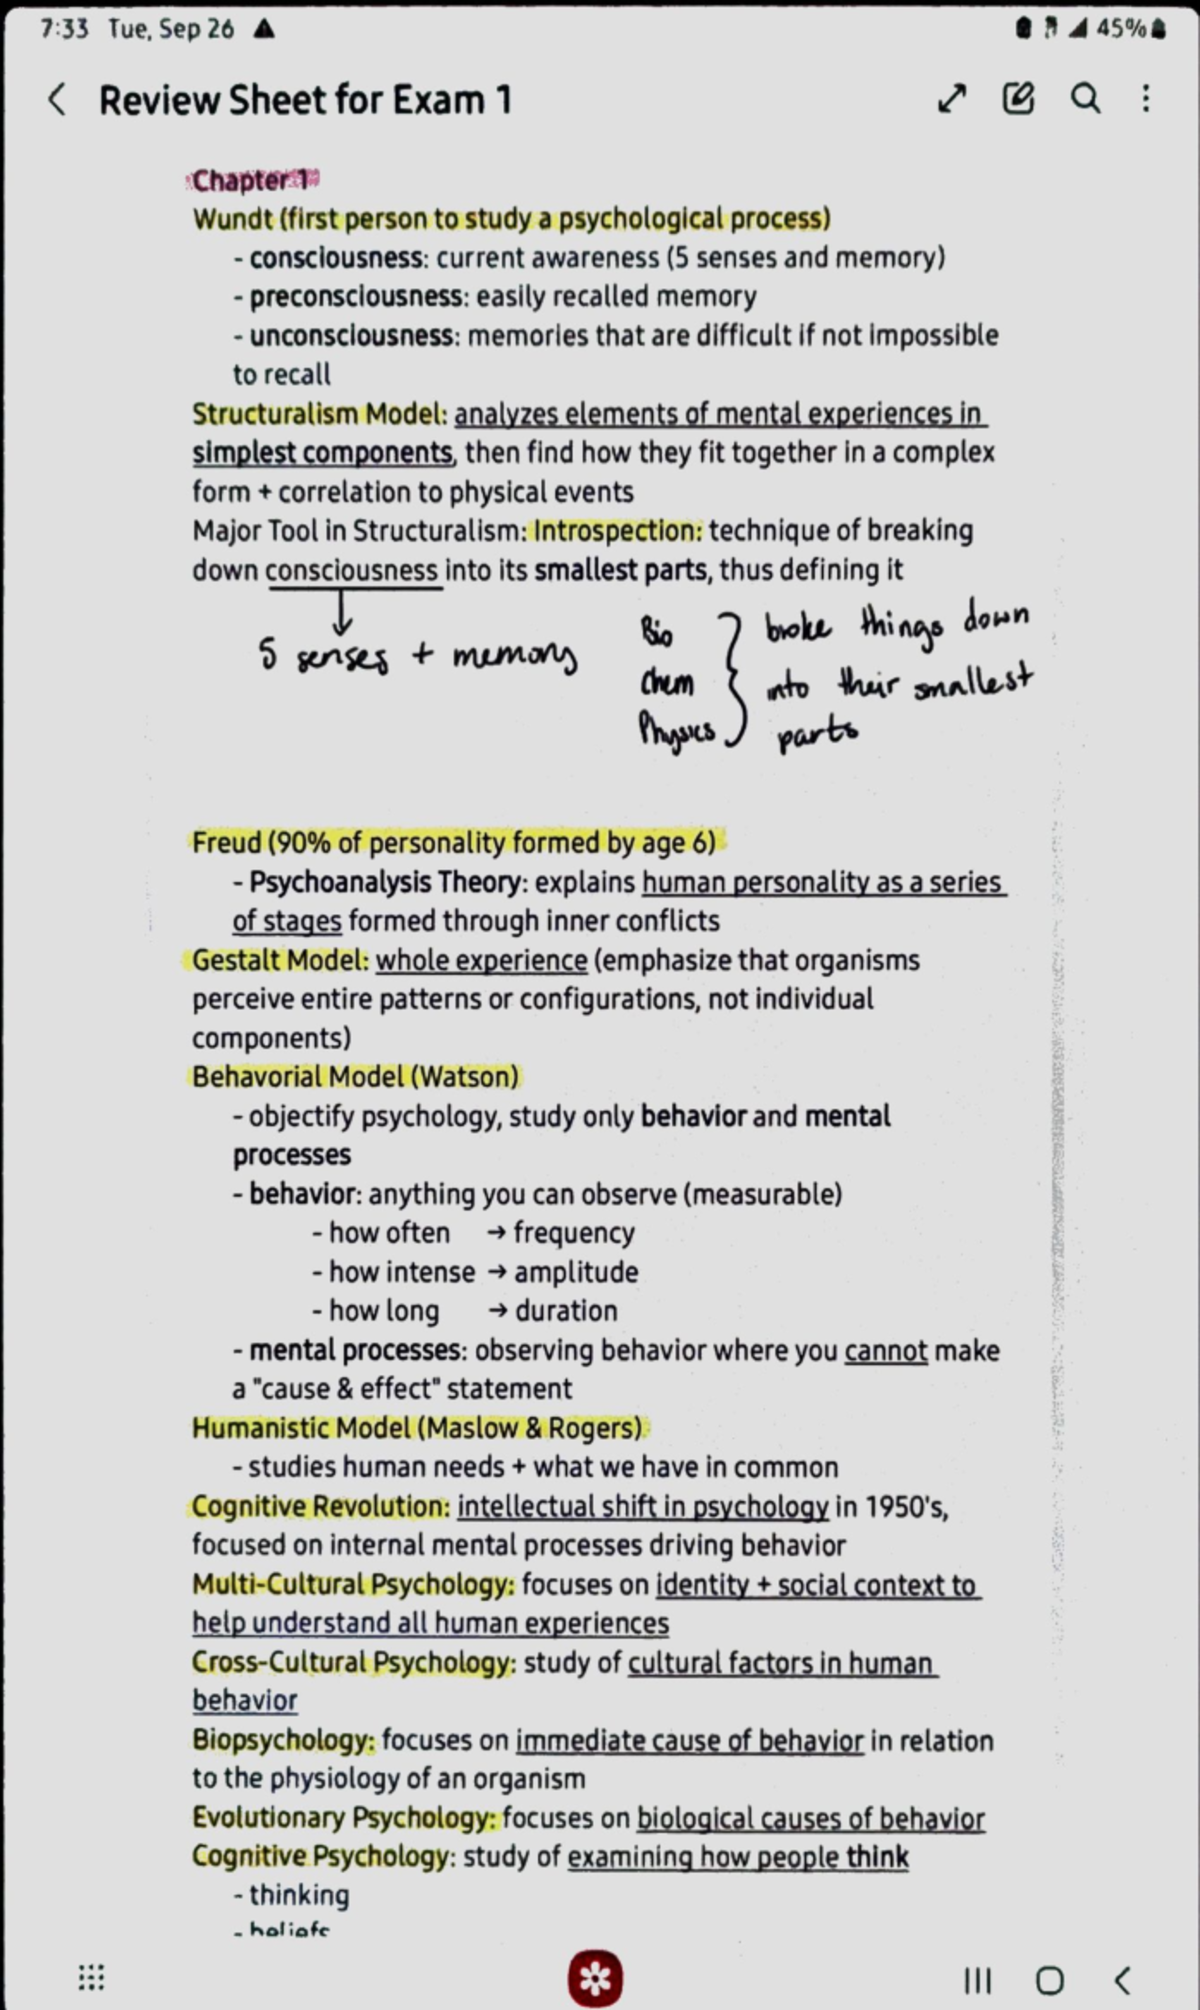 7:33 Tue, Sep 26
45%
Review Sheet for Exam 1
Chapter 1
Wundt (first person to study a psychological process)
- consciousness: current awareness (5 senses and memory)
- preconsciousness: easily recalled memory
- unconsciousness: memories that are difficult if not impossible
to recall
Structuralism Model: analyzes elements of mental experiences in
simplest components, then find how they fit together in a complex
form + correlation to physical events
Major Tool in Structuralism: Introspection: technique of breaking
down consciousness into its smallest parts, thus defining it
5 senses + memory
Bio
Chem
Physics
broke things down
into their smallest
parts
Freud (90% of personality formed by age 6)
- Psychoanalysis Theory: explains human personality as a series
of stages formed through inner conflicts
Gestalt Model: whole experience (emphasize that organisms
perceive entire patterns or configurations, not individual
components)
Behavorial Model (Watson)
- objectify psychology, study only behavior and mental
processes
- behavior: anything you can observe (measurable)
- how often → frequency
- how intense → amplitude
- how long → duration
- mental processes: observing behavior where you cannot make
a "cause & effect" statement
Humanistic Model (Maslow & Rogers)
- studies human needs + what we have in common
Cognitive Revolution: intellectual shift in psychology in 1950's,
focused on internal mental processes driving behavior
Multi-Cultural Psychology: focuses on identity + social context to
help understand all human experiences
Cross-Cultural Psychology: study of cultural factors in human
behavior
Biopsychology: focuses on immediate cause of behavior in relation
to the physiology of an organism
Evolutionary Psychology: focuses on biological causes of behavior
Cognitive Psychology: study of examining how people think
- thinking
- beliefs